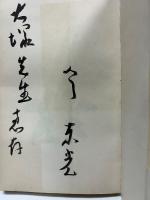 今東光
大塚先生恵存